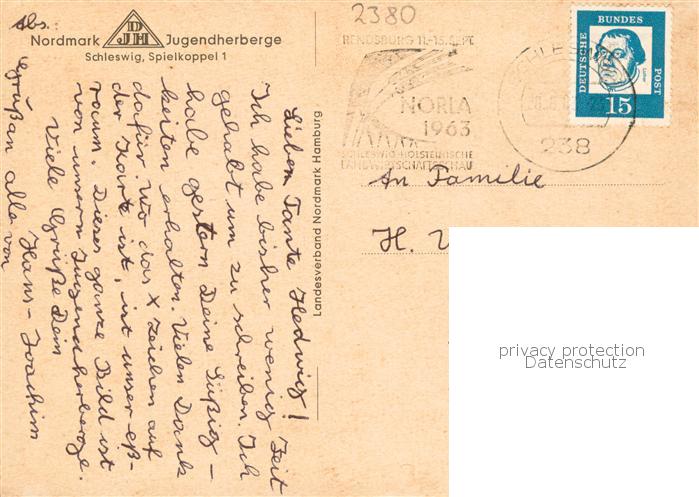 Abs.
Nordmark DJH Jugendherberge
Schleswig, Spielkoppel 1
Lieben Tante Hedwig!
Ich habe bisher wenig Zeit
gehabt um zu schreiben. Ich
habe gestern Deine Süßig-
keiten erhalten. Vielen Dank
dafür. Wo das X Zeichen auf
der Karte ist, ist unser eß-
raum. Dieses ganze Bild ist
von unserer Jugendherberge.
Viele Grüße Dein
Hans-Joachim
Gruß an alle von
Landesverband Nordmark Hamburg
2380
RENDSBURG 11.-15. SEPT.
NORLA
1963
SCHLESWIG-HOLSTEINISCHE
LANDWIRTSCHAFTSSCHAU
238
DEUTSCHE BUNDES POST
15
An Familie
H.
privacy protection
Datenschutz